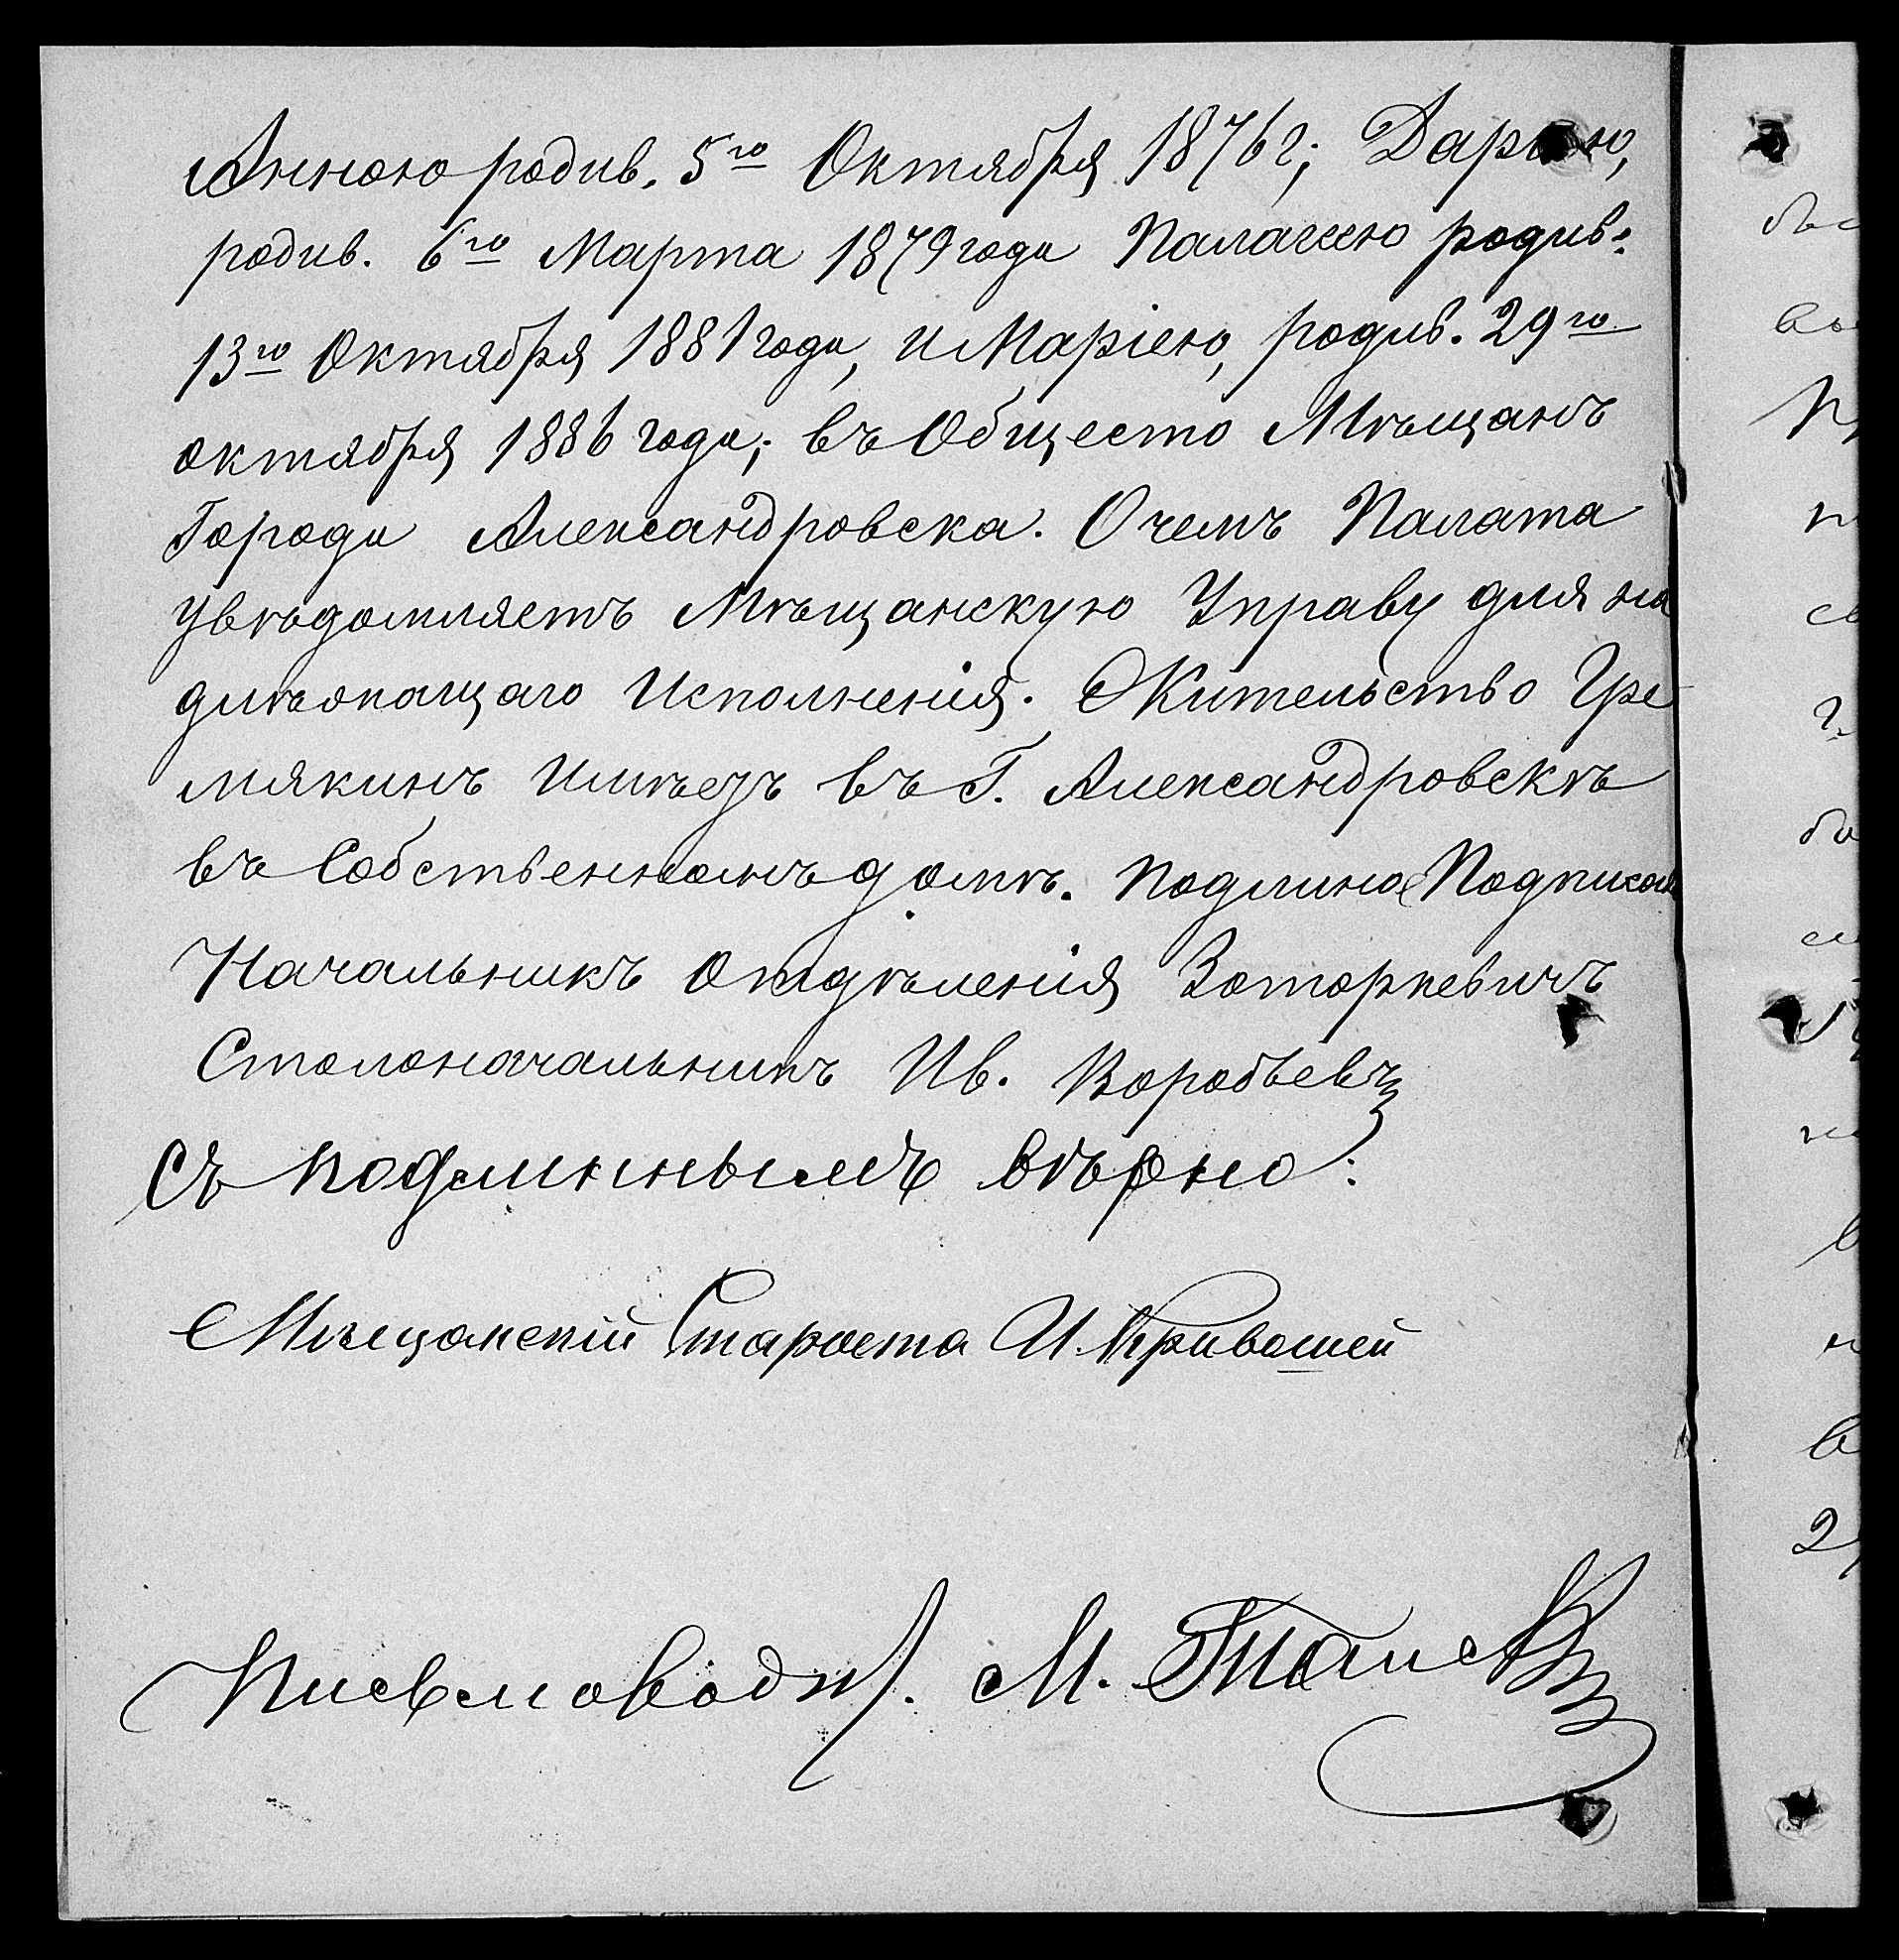 Анною родив. 5го Октября 1876 г; Дарьею,
родив. 6го Марта 1879 года Палагеею родив.
13го Октября 1881 года, и Маріею, родив. 29го
октября 1886 года; въ Общесто Мѣщанъ
Города Александровска. О чемъ Палата
увѣдомляетъ Мѣщанскую Управу для на
длѣжащаго Исполненія. Жительство Гре
мякинъ имѣетъ въ Г. Александровскѣ
въ Собственномъ домѣ. подлиное Подписали
Начальникъ Отдѣленія
Столоначальникъ Ив. Воробьевъ
Съ подлиннымъ вѣрно:
Мѣщанскій Староста И. Кривошей
Письмоводит. М.